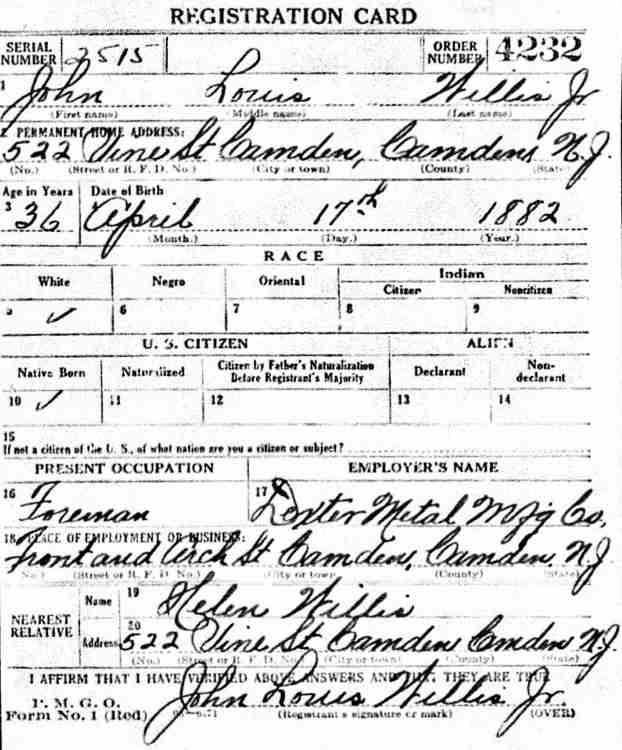 REGISTRATION CARD
SERIAL NUMBER 2515 ORDER NUMBER 4232
1 John Louis Willis Jr
(First name) (Middle name) (Last name)
2 PERMANENT HOME ADDRESS:
522 Vine St Camden, Camden N.J.
(No.) (Street or R. F. D. No.) (City or town) (County) (State)
Age in Years Date of Birth
3 36 April 17th 1882
(Month.) (Day.) (Year.)
RACE
White Negro Oriental Indian
Citizen Noncitizen
5 ✓ 6 7 8 9
U. S. CITIZEN ALIEN
Native Born Naturalized Citizen by Father's Naturalization Before Registrant's Majority Declarant Non-declarant
10 ✓ 11 12 13 14
15
If not a citizen of the U. S., of what nation are you a citizen or subject?
PRESENT OCCUPATION EMPLOYER'S NAME
16 Foreman 17 Dexter Metal Mfg Co.
18 PLACE OF EMPLOYMENT OR BUSINESS:
Front and Arch St Camden, Camden N.J
(No.) (Street or R. F. D. No.) (City or town) (County) (State)
NEAREST RELATIVE Name 19 Helen Willis
Address 20 522 Vine St Camden Cmden N.J.
(No.) (Street or R. F. D. No.) (City or town) (County) (State)
I AFFIRM THAT I HAVE VERIFIED ABOVE ANSWERS AND THAT THEY ARE TRUE
P. M. G. O.
Form No. 1 (Red) John Louis Willis Jr.
(Registrant's signature or mark) (OVER)